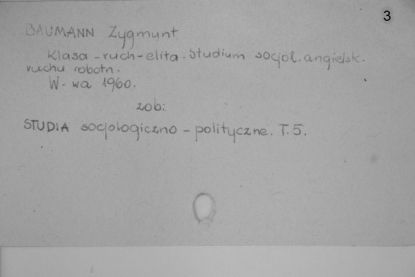 3
BAUMANN Zygmunt
Klasa - ruch - elita. Studium socjol. angielsk.
ruchu robotn.
W-wa 1960.
zob:
STUDIA socjologiczno - polityczne. T. 5.